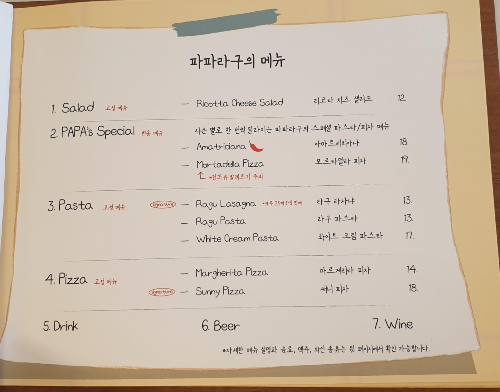 파파라구의 메뉴
1. Salad 고정 메뉴 - Ricotta Cheese Salad 리코타 치즈 샐러드 12.
2. PAPA's Special 변동 메뉴 시즌 별로 한 번씩 달라지는 파파라구의 스페셜 파스타/피자 메뉴
- Amatriciana 아마트리치아나 18.
- Mortadella Pizza 모르타델라 피자 19.
3. Pasta 고정 메뉴 signature - Ragu Lasagna 라구 라자냐 13.
- Ragu Pasta 라구 파스타 13.
- White Cream Pasta 화이트 크림 파스타 17.
4. Pizza 고정 메뉴 - Margherita Pizza 마르게리타 피자 14.
signature - Sunny Pizza 써니 피자 18.
5. Drink 6. Beer 7. Wine
*자세한 메뉴 설명과 음료, 맥주, 와인 종류는 뒷 페이지에서 확인 가능합니다.